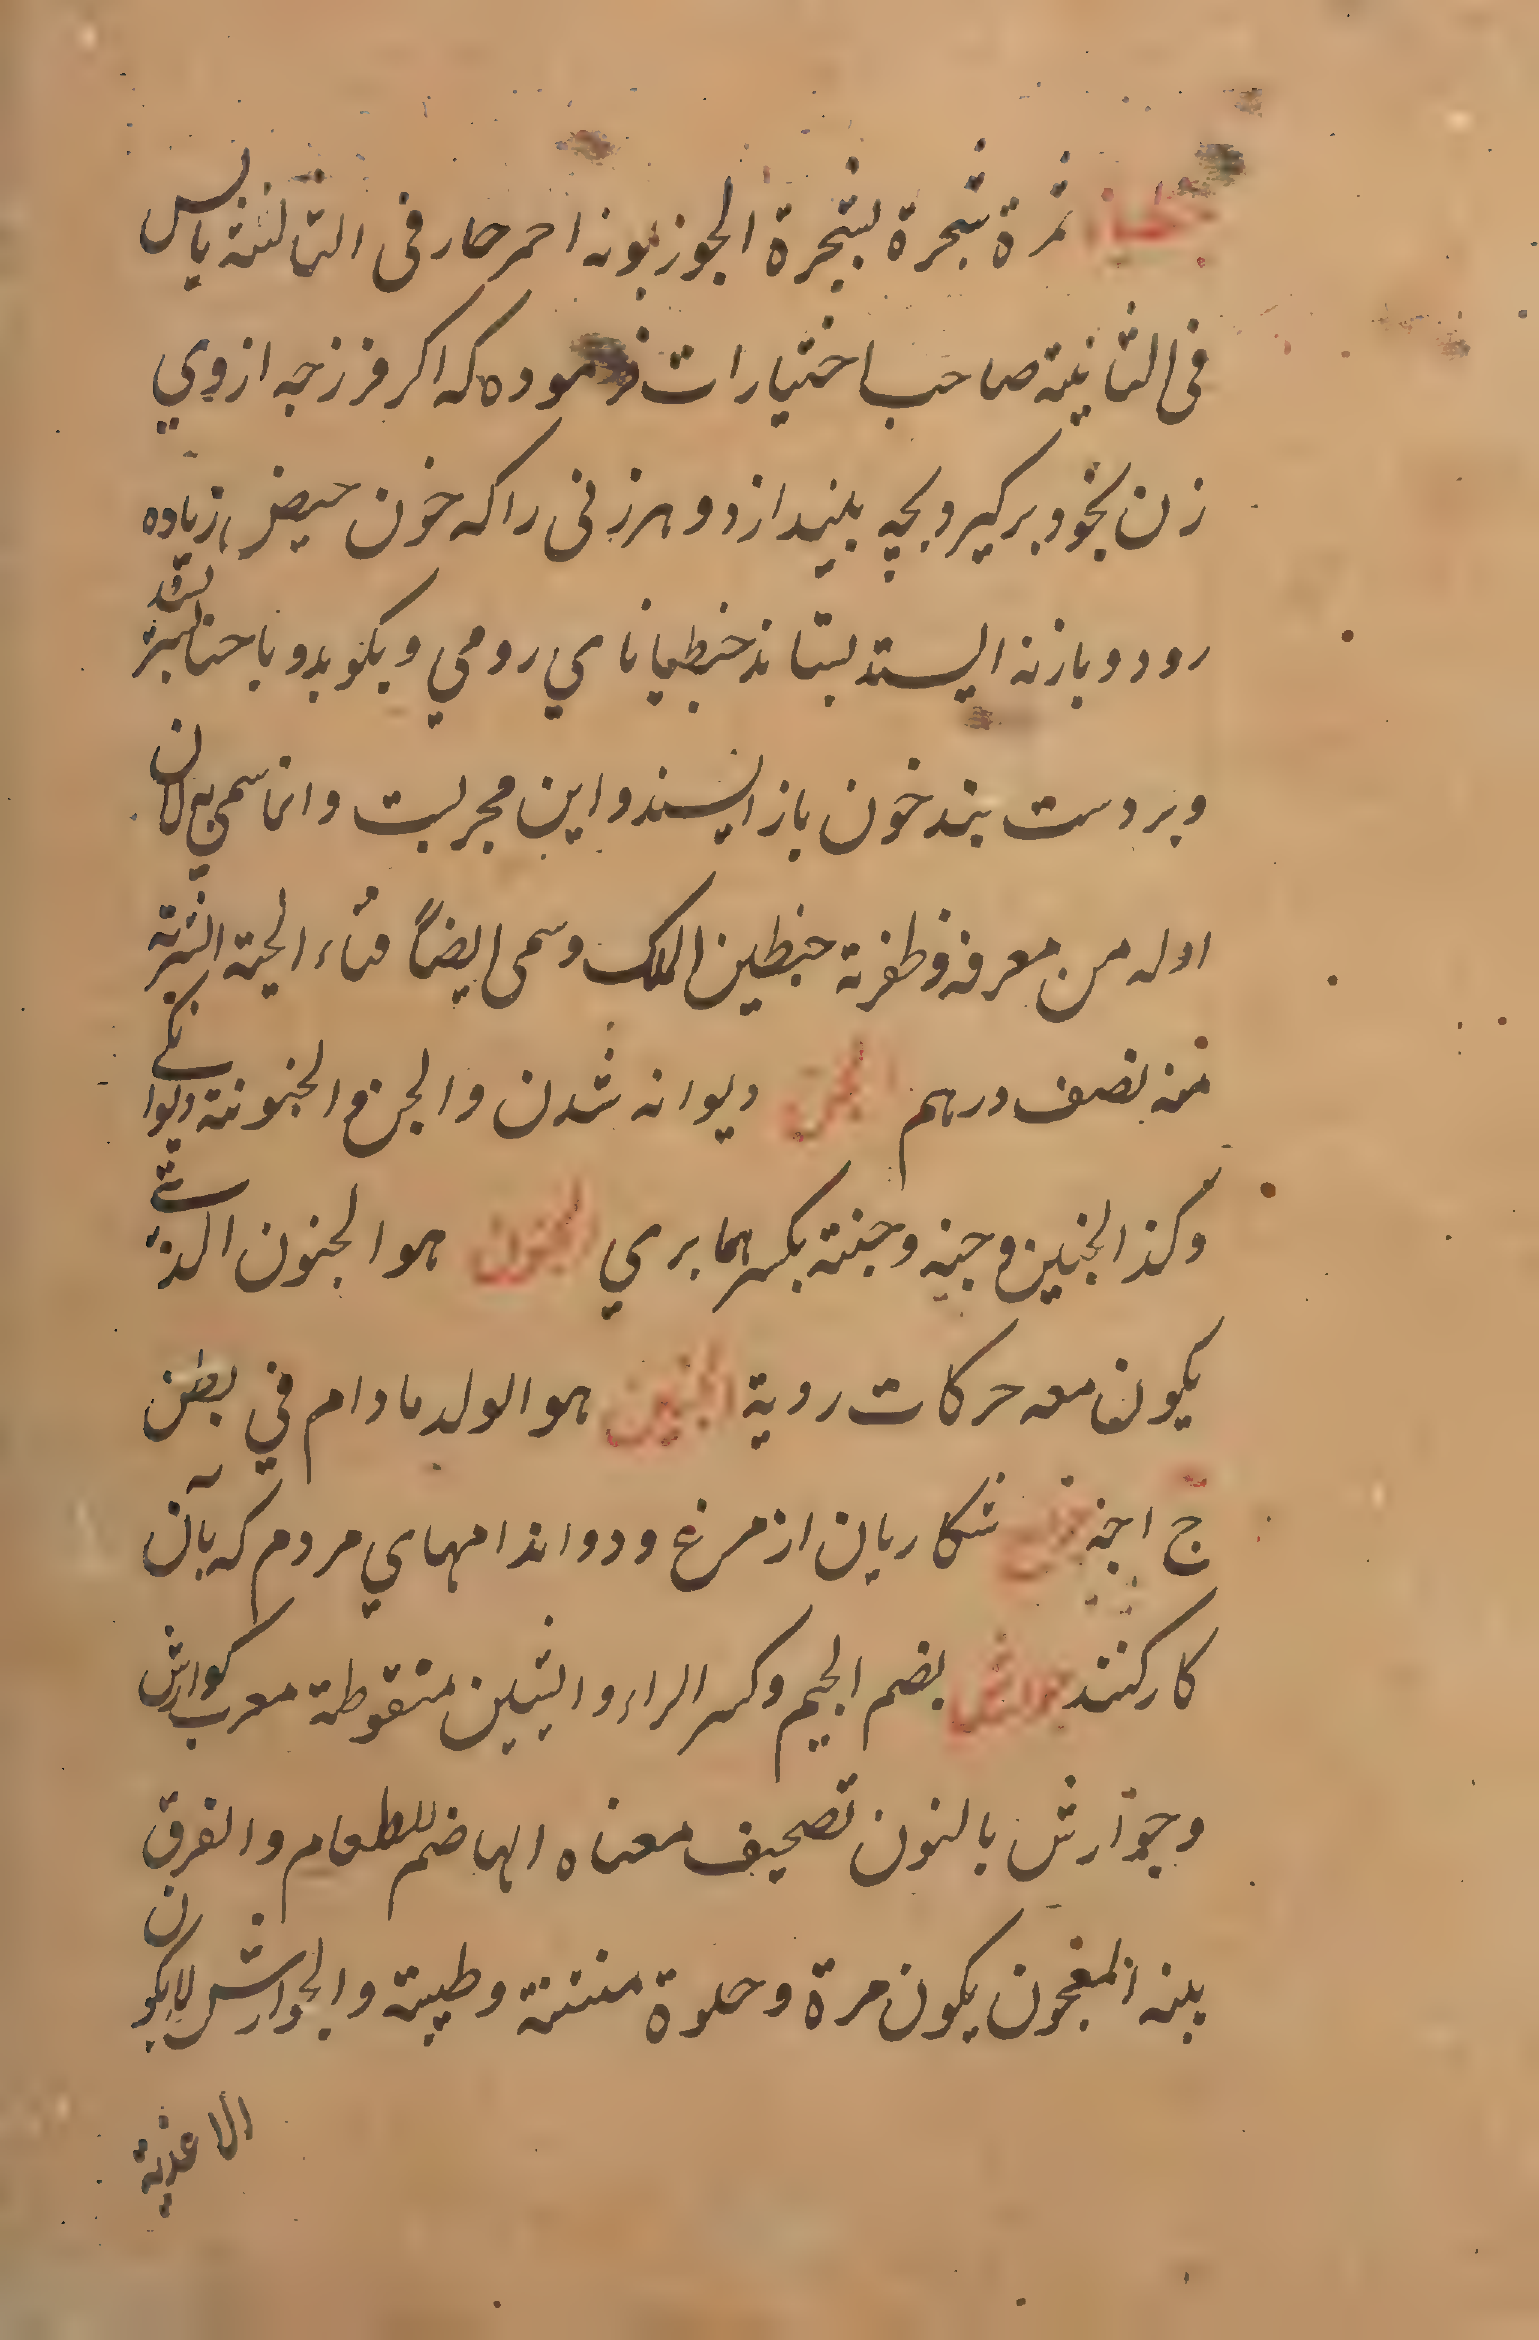 جنطيانا ثمرة شجرة لشجرة الجوز لونه احمر حار فى الثالثة يابس
فى الثانية صاحب اختيارات فرموده كه اكر فرزجه ازوي
زن بخود بركيرد بچه بيندازد و هر زنى را كه خون حيض زياده
رود و باز نه ايستد بستاند جنطياناي رومي و بكوبد و با حنا بسرشد
و بر دست بندد خون باز ايستد و اين مجربست و انما سمي به لان
اوله من معرفه و ظفر به جنطين الملك و سمى ايضاً قثاء الحية الشربة
منه نصف درهم الجن ديوانه شدن و الجن و الجنونة ديوانكے
وكذا الجنين و جنه و جنته بكسرهما برى الجنون هو الجنون الذے
يكون معه حركات ردية الجنين هو الولد مادام في بطن
ج اجنه جوارح شكاريان از مرغ و دو اندامهاي مردم كه بآن
كار كنند جوارش بضم الجيم وكسر الراء و الشين منقوطة معرب كوارش
و جوارش بالنون تصحيف معناه الهاضم للطعام و الفرق
بينه المعجون يكون مرة و حلوة منتنة و طيبة و الجوارش لا يكون
الا عذبة